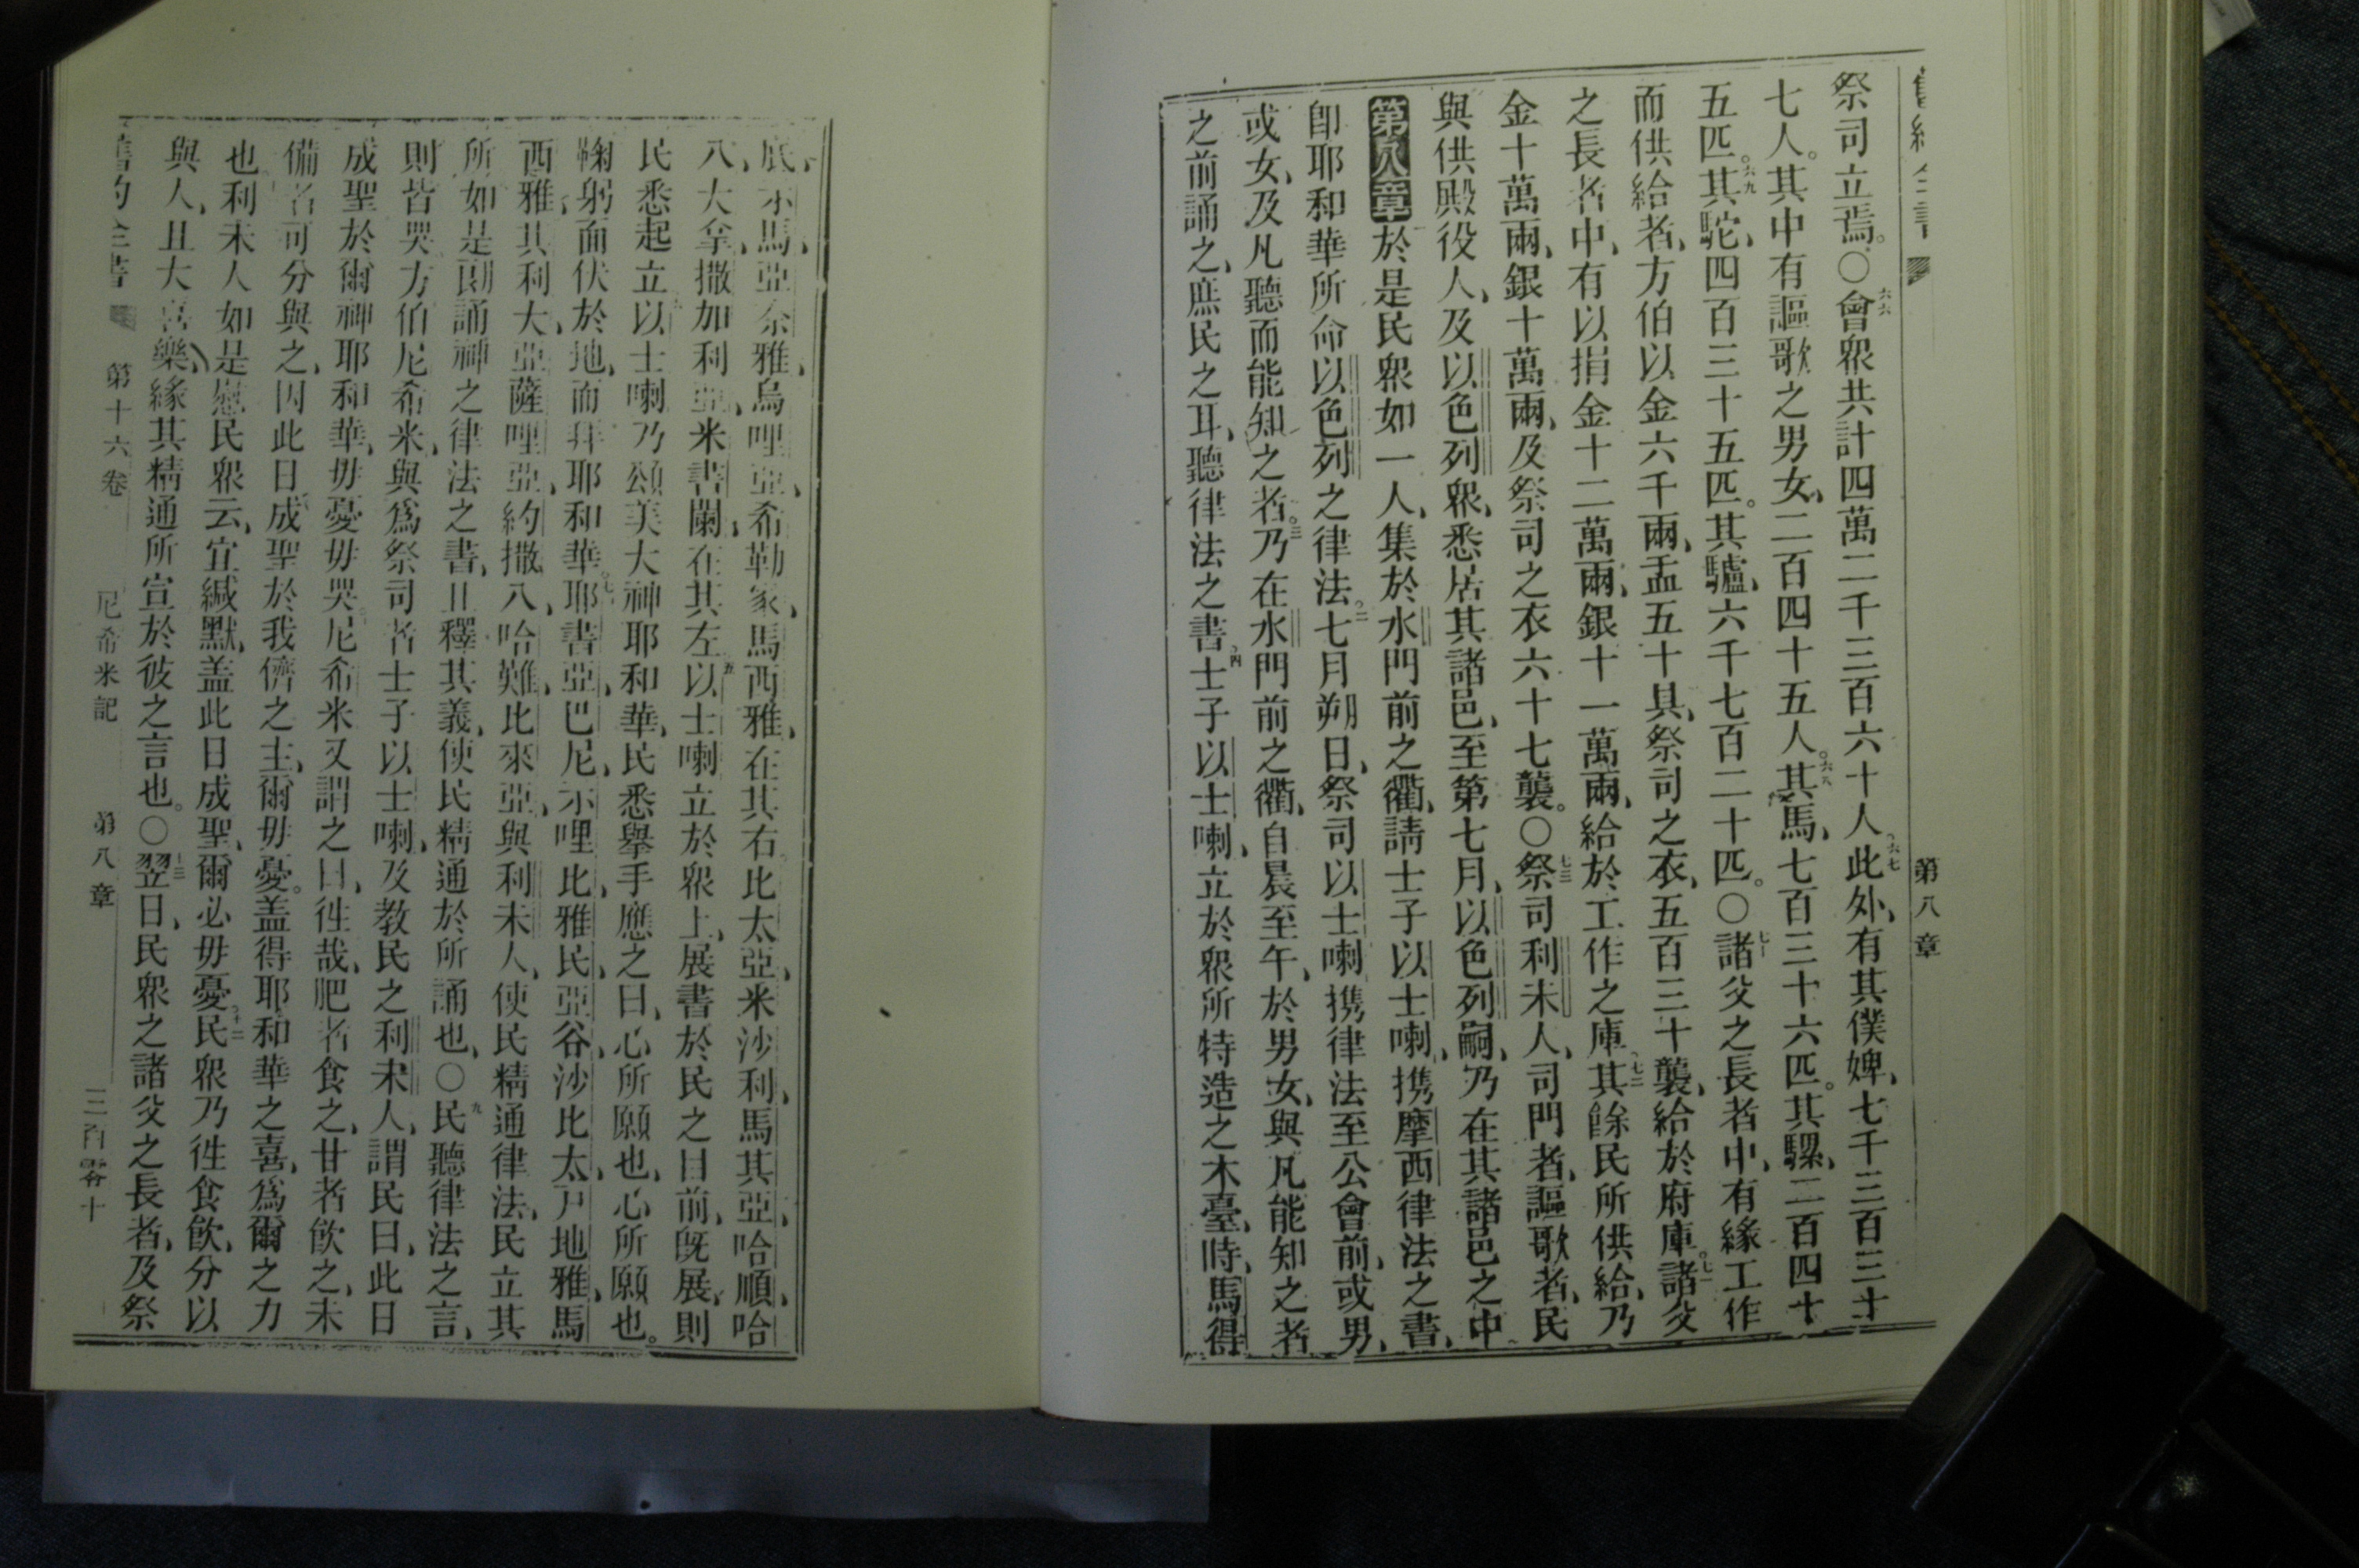 第八章
祭司立焉。○六六會衆共計四萬二千三百六十人、六七此外、有其僕婢、七千三百三十
七人。其中有謳歌之男女、二百四十五人。六八其馬、七百三十六匹。其騾、二百四十
五匹。六九其駝、四百三十五匹。其驢、六千七百二十匹。○七十諸父之長者中、有緣工作
而供給者、方伯以金六千兩、盂五十具、祭司之衣、五百三十襲、給於府庫。七一諸父
之長者中、有以捐金十二萬兩、銀十一萬兩、給於工作之庫、七二其餘民所供給、乃
金十萬兩、銀十萬兩、及祭司之衣六十七襲。○七三祭司利未人、司門者、謳歌者、民
與供殿役人、及以色列衆、悉居其諸邑、至第七月、以色列嗣、乃在其諸邑之中
第八章於是民衆如一人、集於水門前之衢、請士子以士喇、携摩西律法之書、
卽耶和華所命以色列之律法、二七月朔日、祭司以士喇携律法至公會前、或男、
或女、及凡聽而能知之者。三乃在水門前之衢、自晨至午、於男女、與凡能知之者
之前誦之、庶民之耳、聽律法之書、四士子以士喇、立於衆所特造之木臺、時、馬得
底、示馬、亞奈雅、烏哩亞、希勒家、馬西雅、在其右。比太亞、米沙利、馬其亞、哈順、哈
八大拿、撒加利亞、米書闌、在其左、五以士喇立於衆上、展書於民之目前、旣展、則
民悉起立、六以士喇乃頌美大神耶和華、民悉舉手應之曰、心所願也、心所願也。
鞠躬面伏於地、而拜耶和華。七耶書亞、巴尼、示哩比、雅民、亞谷、沙比太、戸地雅、馬
西雅、其利大、亞薩哩亞、約撒八、哈難、比來亞、與利未人、使民精通律法、民立其
所、如是朗誦神之律法之書、且釋其義、使民精通於所誦也、○九民聽律法之言、
則皆哭、方伯尼希米、與爲祭司者士子以士喇、及敎民之利未人、謂民曰、此日
成聖於爾神耶和華、毋憂毋哭。尼希米又謂之曰、徃哉、肥者食之、甘者飮之、未
備者可分與之、因此日成聖於我儕之主、爾毋憂。盖得耶和華之喜、爲爾之力
也、利未人如是慰民衆云、宜緘默、盖此日成聖、爾必毋憂、十二民衆乃徃食飮、分以
與人、且大喜樂、緣其精通所宣於彼之言也。○十三翌日、民衆之諸父之長者、及祭
舊約全書 第十六卷 尼希米記 第八章 三百零十